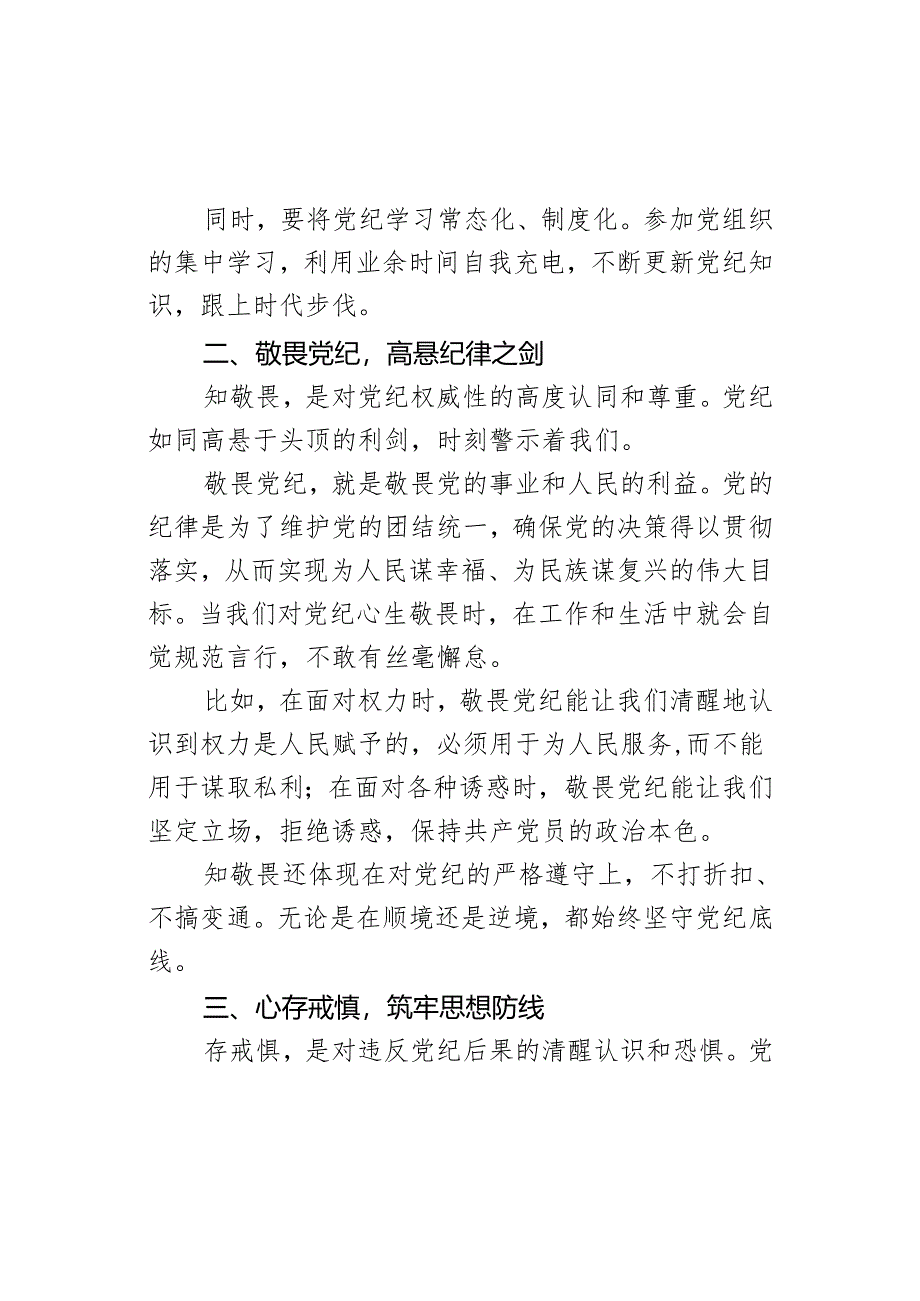 同时，要将党纪学习常态化、制度化。参加党组织
的集中学习，利用业余时间自我充电，不断更新党纪知
识，跟上时代步伐。
二、敬畏党纪，高悬纪律之剑
知敬畏，是对党纪权威性的高度认同和尊重。党纪
如同高悬于头顶的利剑，时刻警示着我们。
敬畏党纪，就是敬畏党的事业和人民的利益。党的
纪律是为了维护党的团结统一，确保党的决策得以贯彻
落实，从而实现为人民谋幸福、为民族谋复兴的伟大目
标。当我们对党纪心生敬畏时，在工作和生活中就会自
觉规范言行，不敢有丝毫懈怠。
比如，在面对权力时，敬畏党纪能让我们清醒地认
识到权力是人民赋予的，必须用于为人民服务,而不能
用于谋取私利；在面对各种诱惑时，敬畏党纪能让我们
坚定立场，拒绝诱惑，保持共产党员的政治本色。
知敬畏还体现在对党纪的严格遵守上，不打折扣、
不搞变通。无论是在顺境还是逆境，都始终坚守党纪底
线。
三、心存戒慎，筑牢思想防线
存戒惧，是对违反党纪后果的清醒认识和恐惧。党